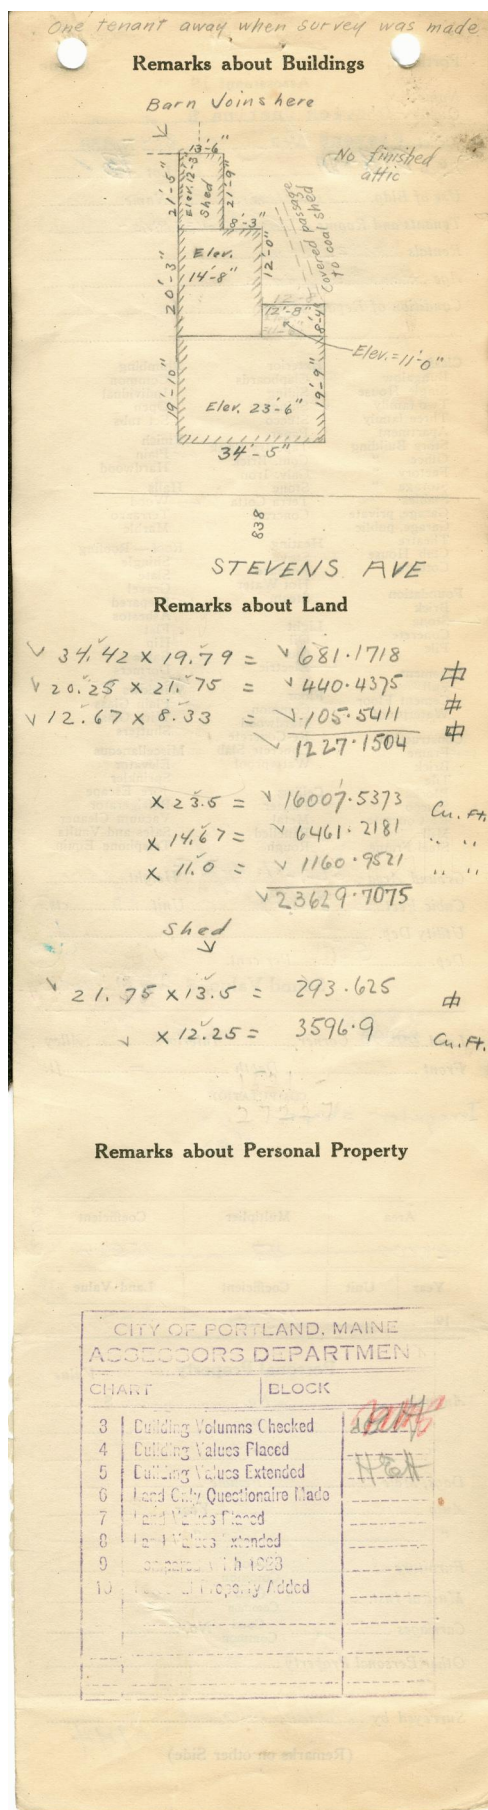 One tenant away when survey was made
Remarks about Buildings
Barn Joins here
13'-6"
No finished
attic
21'-5"
Elev. 12'-3"
Shed
21'-9"
8'-3"
Covered passage
to coal shed
Elev.
14'-8"
20'-3"
12'-0"
12'-8"
8'-4"
Elev.=11'-0"
19'-10"
19'-9"
Elev. 23'-6"
34'-5"
838
STEVENS AVE
Remarks about Land
34.42 x 19.79 = 681.1718
20.25 x 21.75 = 440.4375
12.67 x 8.33 = 105.5411
1227.1504
x 23.5 = 16007.5373 Cu. Ft.
x 14.67 = 6461.2181 " "
x 11.0 = 1160.9521 " "
23629.7075
Shed
21.75 x 13.5 = 293.625
x 12.25 = 3596.9 Cu. Ft.
Remarks about Personal Property
CITY OF PORTLAND, MAINE
ASSESSORS DEPARTMEN
CHART BLOCK
3 Building Volumns Checked
4 Building Values Placed
5 Building Values Extended
6 Land Only Questionaire Made
7 Land Values Placed
8 Land Values Extended
9 with 1923
10 Property Added